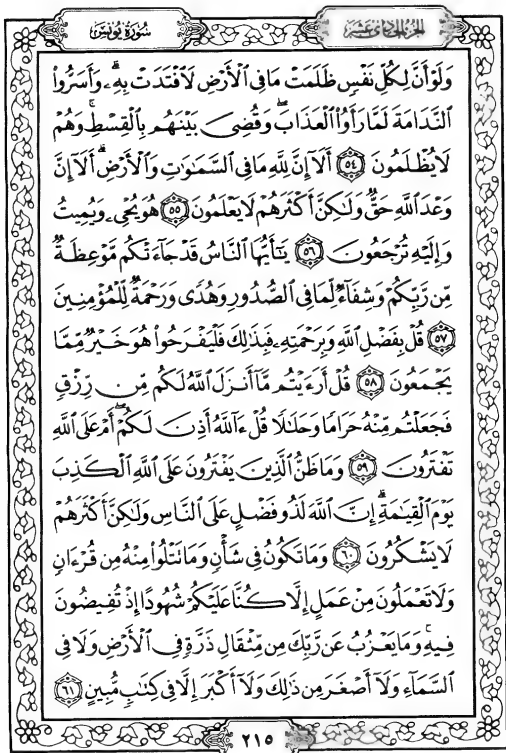 سُورَةُ يُونُسَ
الجزء الحادي عشر
وَلَوْ أَنَّ لِكُلِّ نَفْسٍ ظَلَمَتْ مَا فِي الْأَرْضِ لَافْتَدَتْ بِهِ ۗ وَأَسَرُّوا
النَّدَامَةَ لَمَّا رَأَوُا الْعَذَابَ ۖ وَقُضِيَ بَيْنَهُم بِالْقِسْطِ ۚ وَهُمْ
لَا يُظْلَمُونَ ٥٤ أَلَا إِنَّ لِلَّهِ مَا فِي السَّمَاوَاتِ وَالْأَرْضِ ۗ أَلَا إِنَّ
وَعْدَ اللَّهِ حَقٌّ وَلَٰكِنَّ أَكْثَرَهُمْ لَا يَعْلَمُونَ ٥٥ هُوَ يُحْيِي وَيُمِيتُ
وَإِلَيْهِ تُرْجَعُونَ ٥٦ يَا أَيُّهَا النَّاسُ قَدْ جَاءَتْكُم مَّوْعِظَةٌ
مِّن رَّبِّكُمْ وَشِفَاءٌ لِّمَا فِي الصُّدُورِ وَهُدًى وَرَحْمَةٌ لِّلْمُؤْمِنِينَ
٥٧ قُلْ بِفَضْلِ اللَّهِ وَبِرَحْمَتِهِ فَبِذَٰلِكَ فَلْيَفْرَحُوا هُوَ خَيْرٌ مِّمَّا
يَجْمَعُونَ ٥٨ قُلْ أَرَأَيْتُم مَّا أَنزَلَ اللَّهُ لَكُم مِّن رِّزْقٍ
فَجَعَلْتُم مِّنْهُ حَرَامًا وَحَلَالًا قُلْ آللَّهُ أَذِنَ لَكُمْ ۖ أَمْ عَلَى اللَّهِ
تَفْتَرُونَ ٥٩ وَمَا ظَنُّ الَّذِينَ يَفْتَرُونَ عَلَى اللَّهِ الْكَذِبَ
يَوْمَ الْقِيَامَةِ ۗ إِنَّ اللَّهَ لَذُو فَضْلٍ عَلَى النَّاسِ وَلَٰكِنَّ أَكْثَرَهُمْ
لَا يَشْكُرُونَ ٦٠ وَمَا تَكُونُ فِي شَأْنٍ وَمَا تَتْلُو مِنْهُ مِن قُرْآنٍ
وَلَا تَعْمَلُونَ مِنْ عَمَلٍ إِلَّا كُنَّا عَلَيْكُمْ شُهُودًا إِذْ تُفِيضُونَ
فِيهِ ۚ وَمَا يَعْزُبُ عَن رَّبِّكَ مِن مِّثْقَالِ ذَرَّةٍ فِي الْأَرْضِ وَلَا فِي
السَّمَاءِ وَلَا أَصْغَرَ مِن ذَٰلِكَ وَلَا أَكْبَرَ إِلَّا فِي كِتَابٍ مُّبِينٍ ٦١
٢١٥